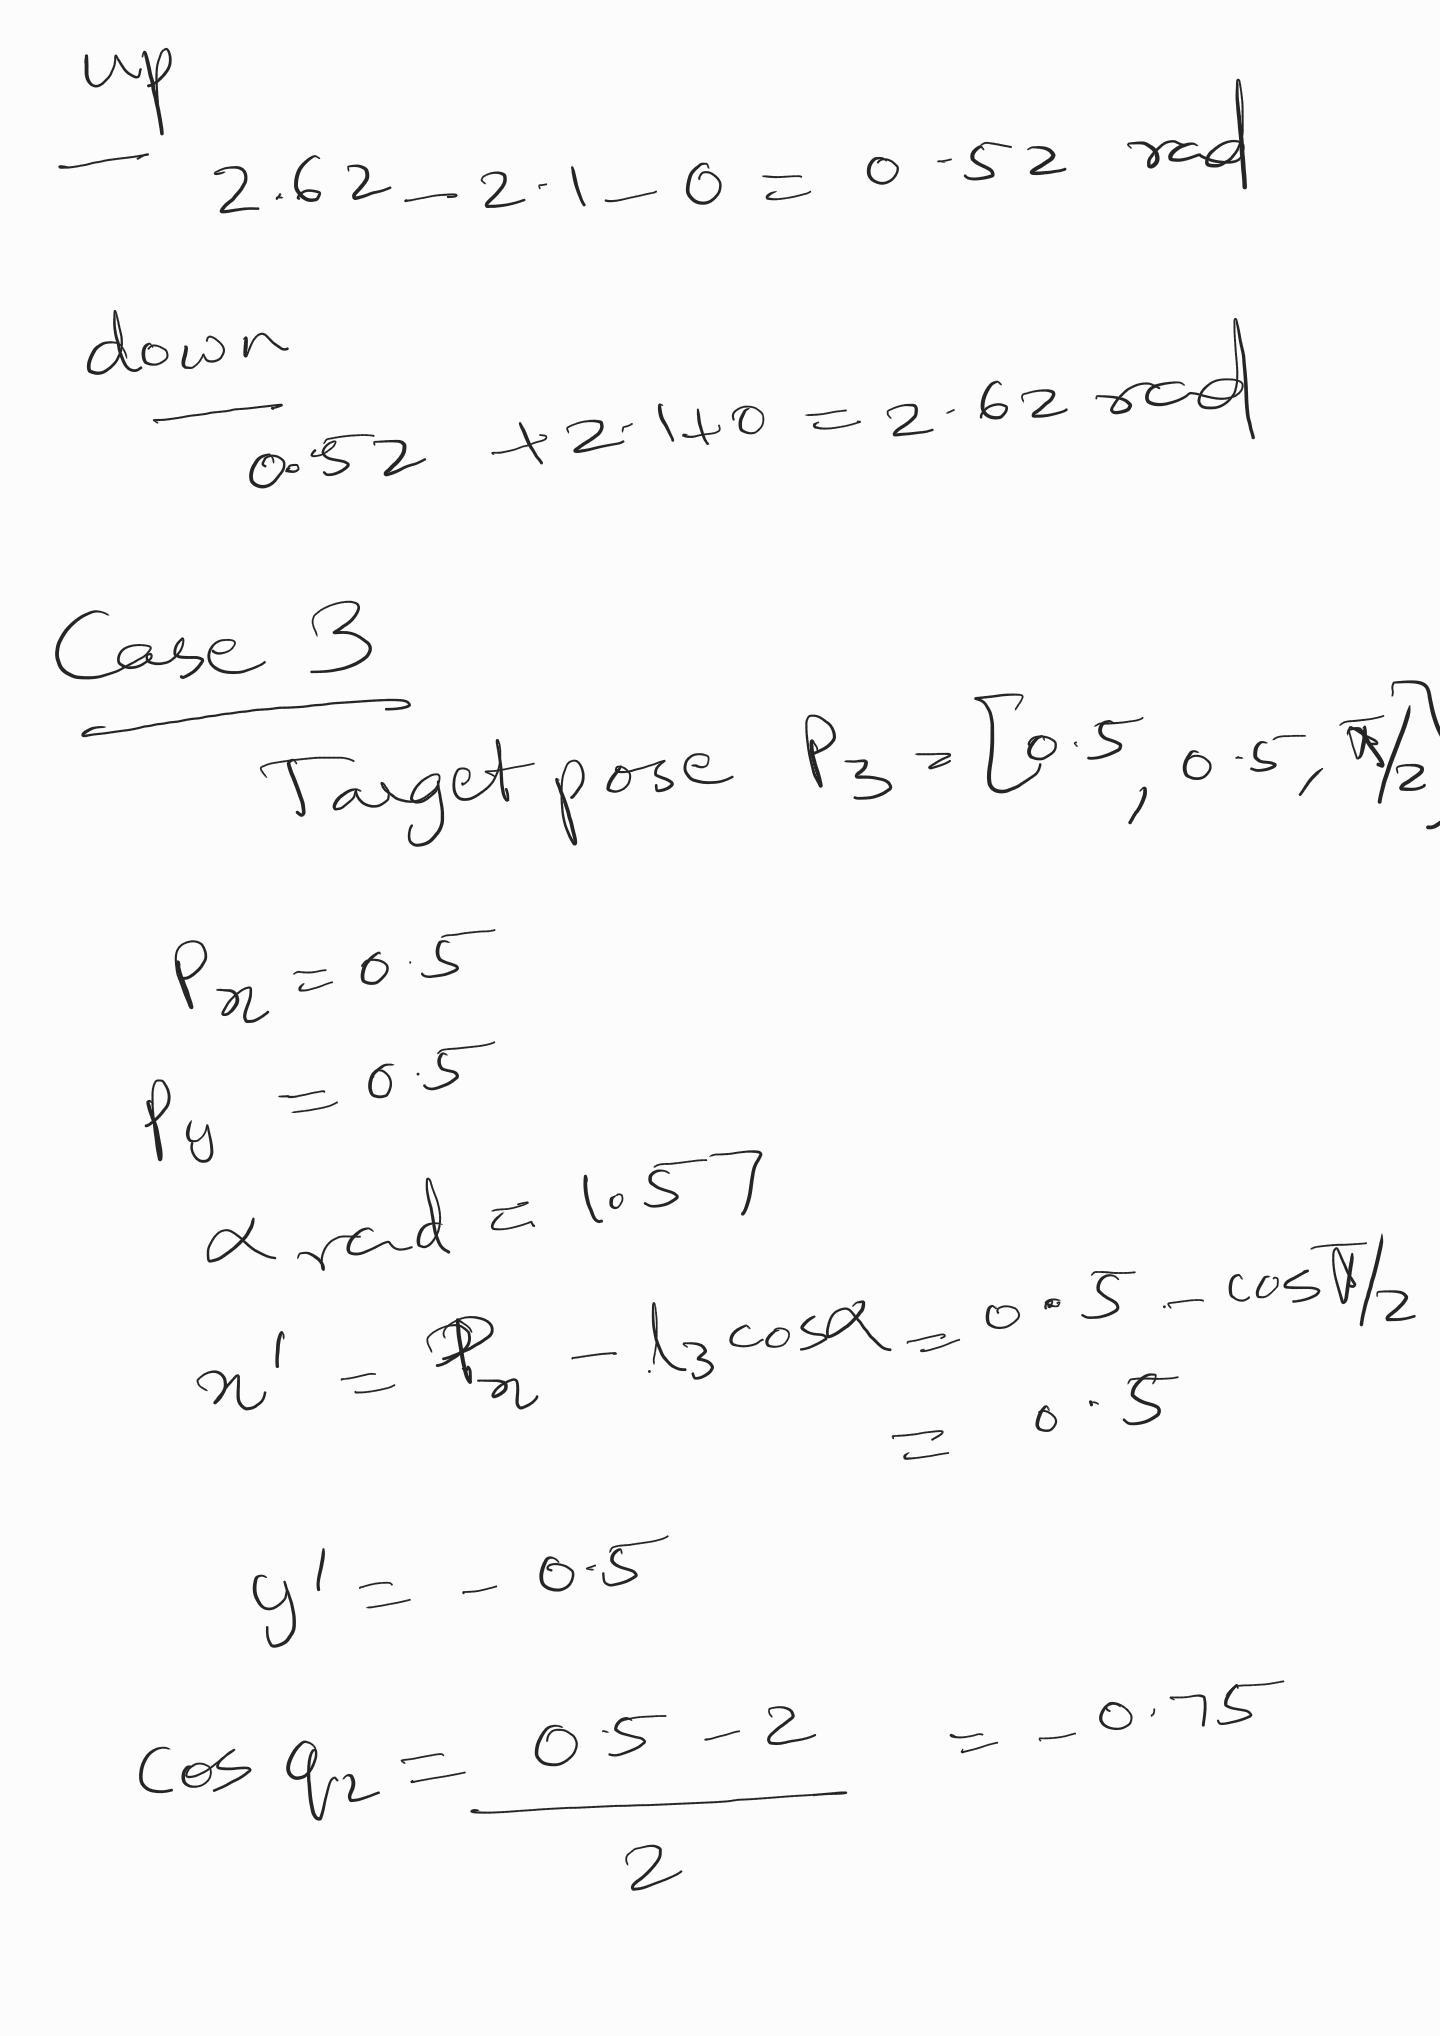 up
2.62 - 2.1 - 0 = 0.52 rad
down
0.52 + 2.1 + 0 = 2.62 rad
Case 3
Target pose P₃ = [0.5, 0.5, π/2]
Pₓ = 0.5
Py = 0.5
α rad = 1.57
x' = Pₓ - l₃ cosα = 0.5 - cos π/2
= 0.5
y' = - 0.5
cos q₂ = 0.5 - 2 = - 0.75
2